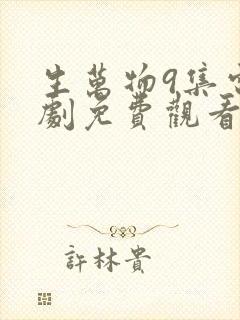 生萬物9集電
劇免費觀看
許林貴